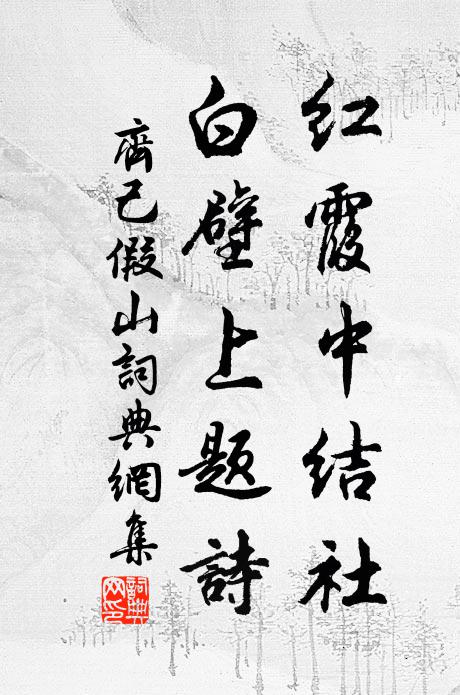 红霞中结社
白壁上题詩
齊己假山詞典網集
詞典
网印